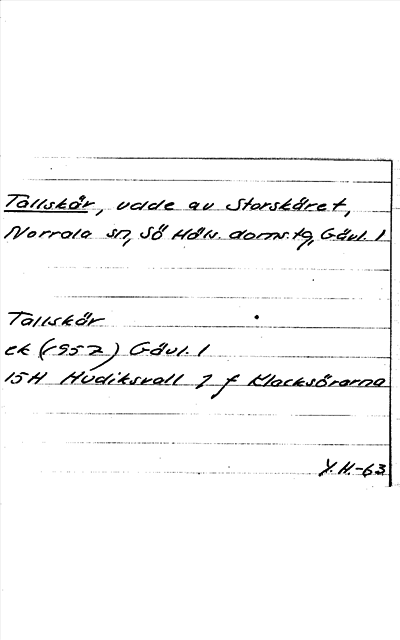 Tallskär, udde av Storskäret,
Norrala sn, Sö Häls. doms.tg, Gävl. l
Tallskär
ek (1957) Gävl. l
15H Hudiksvall 7 f Klacksörarna
Y.H.-63